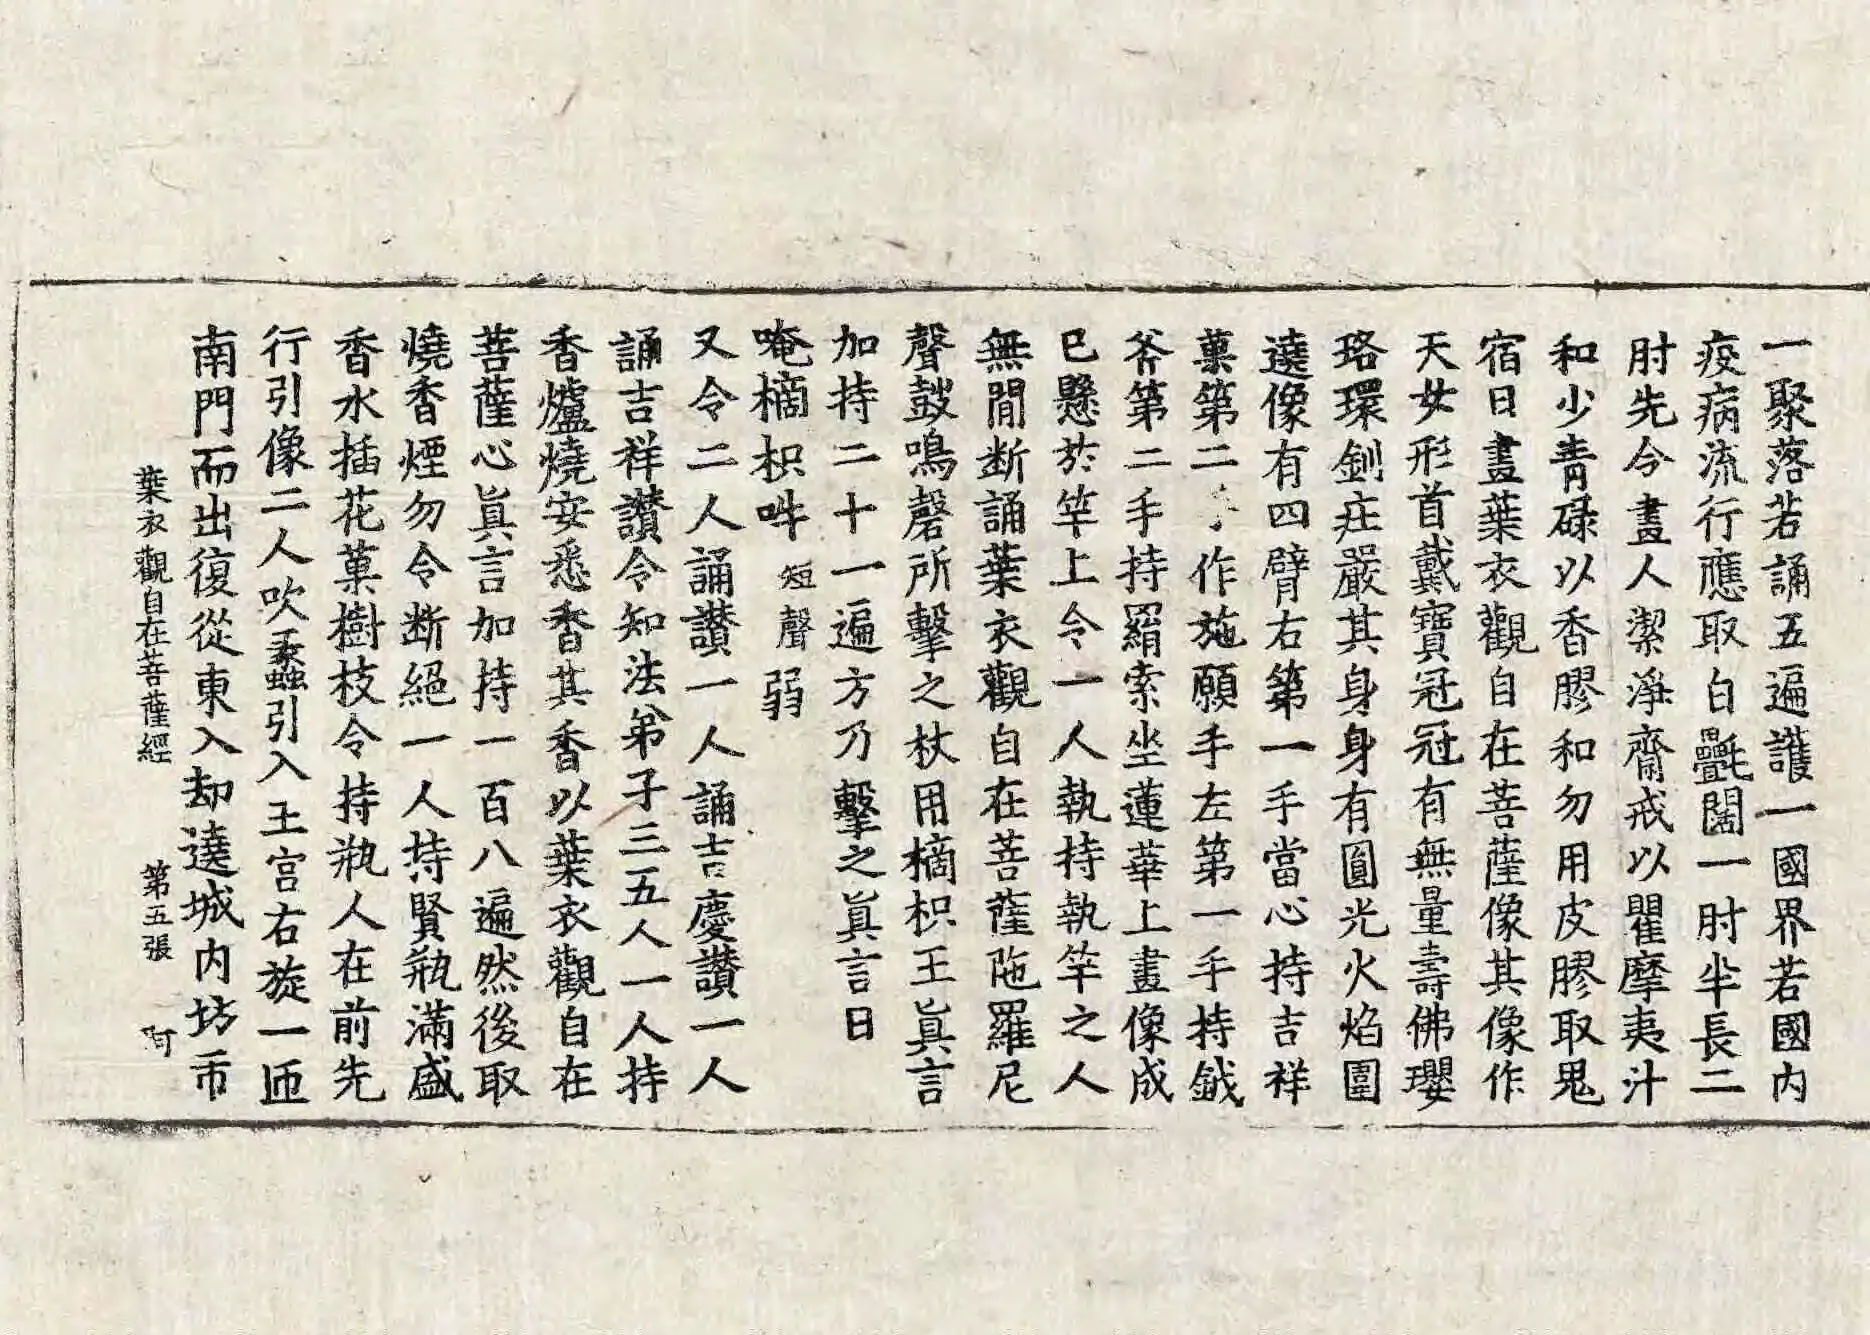 一聚落若誦五遍護一國界若國內
疫病流行應取白氎闊一肘半長二
肘先令畫人潔淨齋戒以瞿摩夷汁
和少青碌以香膠和勿用皮膠取鬼
宿日畫葉衣觀自在菩薩像其像作
天女形首戴寶冠冠有無量壽佛瓔
珞環釧莊嚴其身身有圓光火焰圍
遶像有四臂右第一手當心持吉祥
菓第二手作施願手左第一手持鉞
斧第二手持羂索坐蓮華上畫像成
已懸於竿上令一人執持執竿之人
無間断誦葉衣觀自在菩薩陁羅尼
聲鼓鳴磬所擊之杖用樀枳王眞言
加持二十一遍方乃擊之眞言曰
唵樀枳吽短聲弱
又令二人誦讚一人誦吉慶讚一人
誦吉祥讃令知法弟子三五人一人持
香爐燒安悉香其香以葉衣觀自在
菩薩心眞言加持一百八遍然後取
燒香煙勿令断絕一人持賢瓶滿盛
香水插花菓樹枝令持瓶人在前先
行引像二人吹蠡引入王宫右旋一匝
南門而出復從東入却遶城内坊市
葉衣觀自在菩薩經 第五張